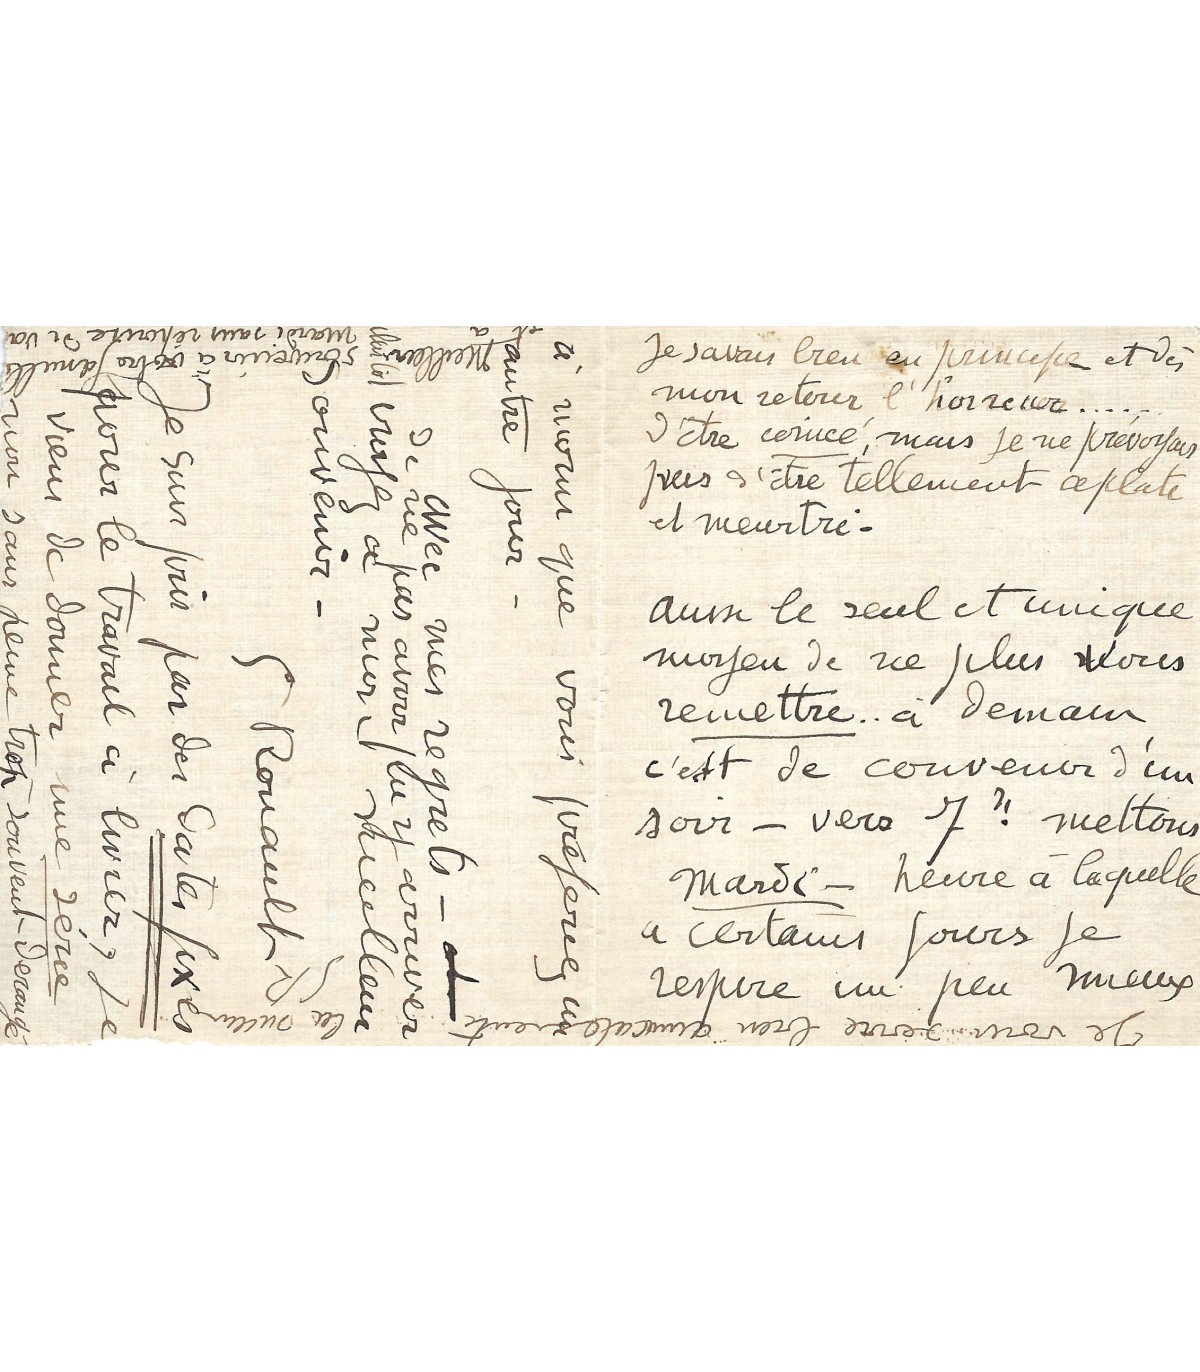 Je savais bien en principe et dès
mon retour l'horreur.....
d'être coincé, mais je ne prévoyais
pas d'être tellement aplati
et meurtri -
Aussi le seul et unique
moyen de ne plus vous
remettre.. à demain
c'est de convenir d'un
soir - vers 7 h mettons
Mardi - heure à laquelle
a certains jours je
respire un peu mieux
à moins que vous préfériez un
autre jour -
avec mes regrets -
de ne pas avoir pu y arriver
à mon meilleur
Souvenir -
G Rouault
GR
Je suis pris par des dates fixes
pour le travail à livrer, je
viens de donner une série
non sans peine trop souvent dérangé
Meilleur
souvenir à votre famille
mardi sans réponse de va
et à
Je vous serre bien amicalement
la